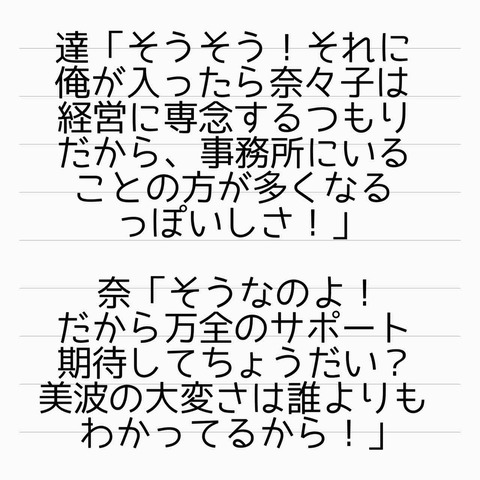 達「そうそう！それに
俺が入ったら奈々子は
経営に専念するつもり
だから、事務所にいる
ことの方が多くなる
っぽいしさ！」
奈「そうなのよ！
だから万全のサポート
期待してちょうだい？
美波の大変さは誰よりも
わかってるから！」